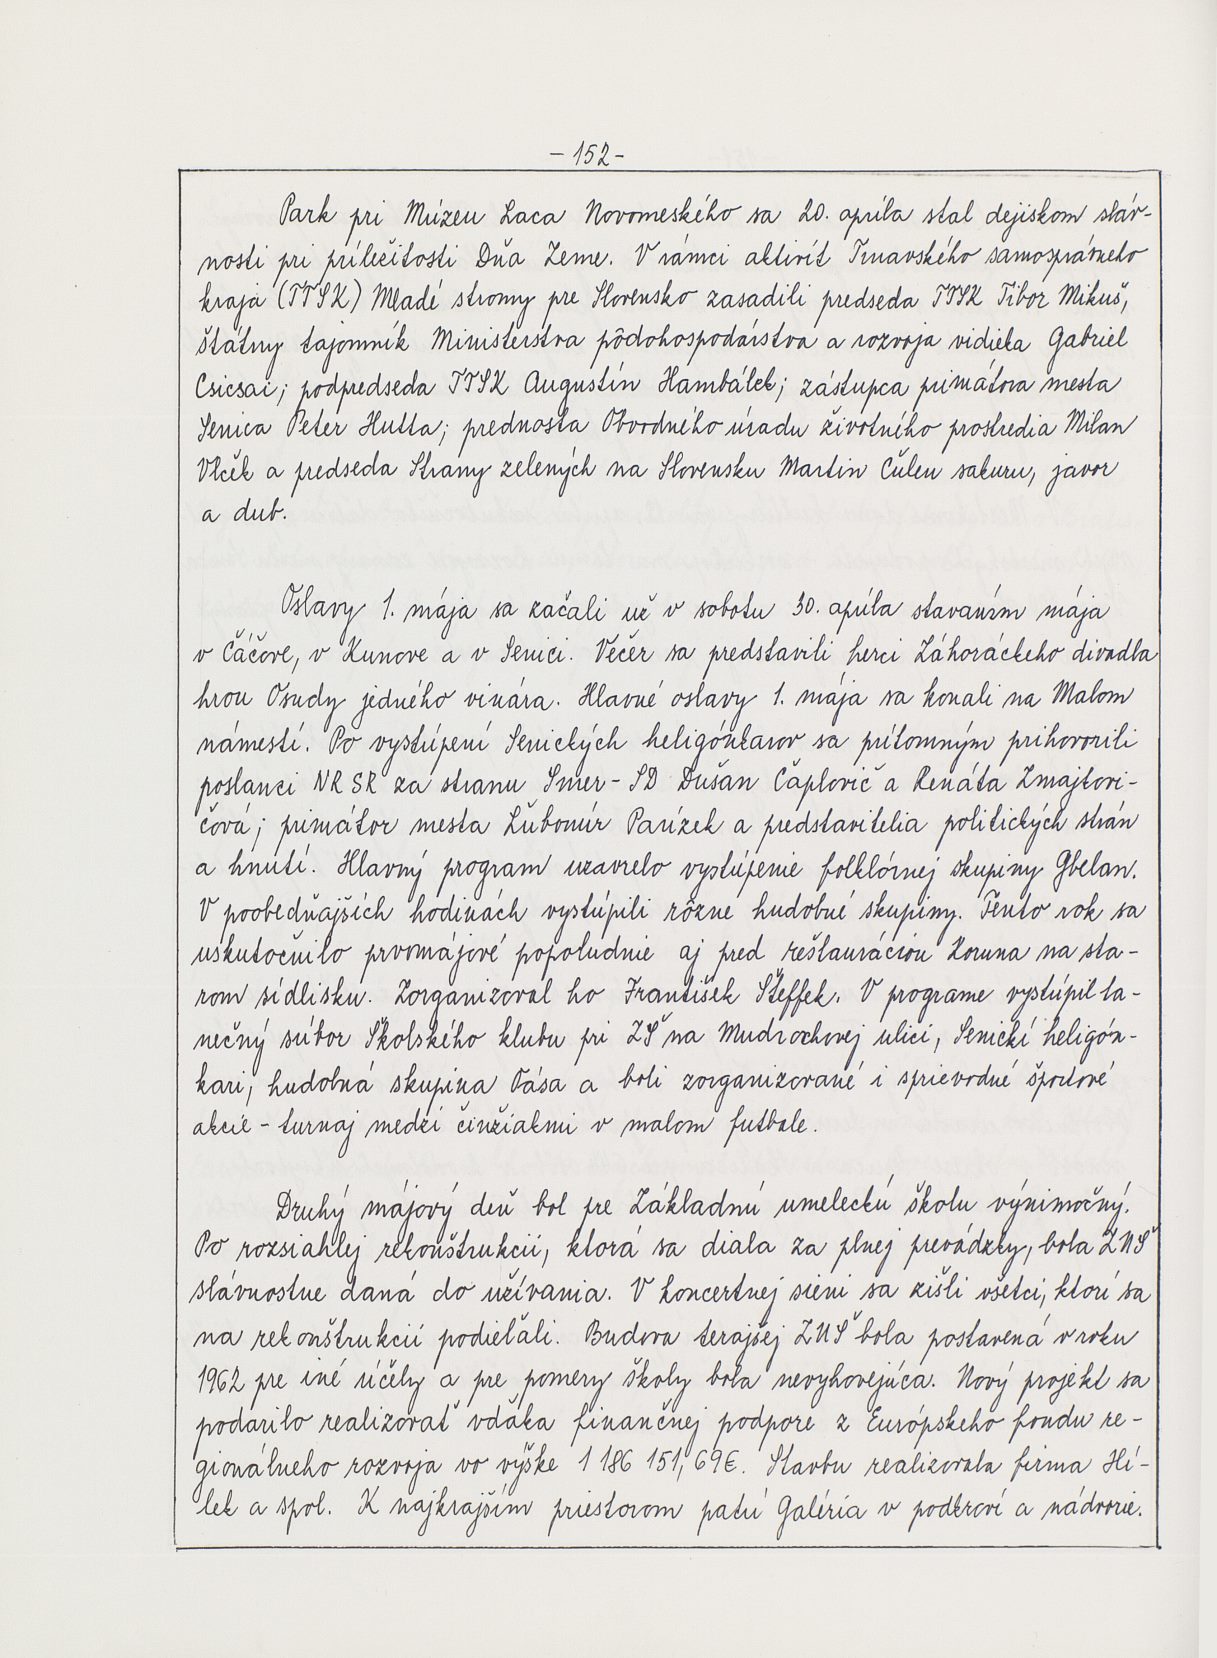 - 152 -
Park pri Múzeu Laca Novomeského sa 20. apríla stal dejiskom sláv-
nosti pri príležitosti Dňa Zeme. V rámci aktivít Trnavského samosprávneho
kraja (TTSK) Mladé stromy pre Slovensko zasadili predseda TTSK Tibor Mikuš,
štátny tajomník Ministerstva pôdohospodárstva a rozvoja vidieka Gabriel
Csicsai; podpredseda TTSK Augustín Hambálek; zástupca primátora mesta
Senica Peter Hutta; prednosta Obvodného úradu životného prostredia Milan
Vlček a predseda Strany zelených na Slovensku Martin Čulen sakuru, javor
a dub.
Oslavy 1. mája sa začali už v sobotu 30. apríla stavaním mája
v Čáčove, v Kunove a v Senici. Večer sa predstavili herci Záhoráckeho divadla
hrou Osudy jedného vinára. Hlavné oslavy 1. mája sa konali na Malom
námestí. Po vystúpení Senických heligónkarov sa prítomným prihovorili
poslanci NR SR za stranu Smer - SD Dušan Čaplovič a Renáta Zmajkovi-
čová; primátor mesta Ľubomír Parízek a predstavitelia politických strán
a hnutí. Hlavný program uzavrelo vystúpenie folklórnej skupiny Gbelan.
V poobedňajších hodinách vystúpili rôzne hudobné skupiny. Tento rok sa
uskutočnilo prvomájové popoludnie aj pred reštauráciou Koruna na sta-
rom sídlisku. Zorganizoval ho František Šteffek. V programe vystúpil ta-
nečný súbor Školského klubu pri ZŠ na Mudrochovej ulici, Senickí heligón-
kari, hudobná skupina Oása a boli zorganizované i sprievodné športové
akcie - turnaj medzi činžiakmi v malom futbale.
Druhý májový deň bol pre Základnú umeleckú školu výnimočný.
Po rozsiahlej rekonštrukcii, ktorá sa diala za plnej prevádzky, bola ZUŠ
slávnostne daná do užívania. V koncertnej sieni sa zišli všetci, ktorí sa
na rekonštrukcii podieľali. Budova terajšej ZUŠ bola postavená v roku
1962 pre iné účely a pre pomery školy bola nevyhovejúca. Nový projekt sa
podarilo realizovať vďaka finančnej podpore z Európskeho fondu re-
gionálneho rozvoja vo výške 1 186 151,69€. Stavbu realizovala firma Hí-
lek a spol. K najkrajším priestorom patrí Galéria v podkroví a nádvorie.